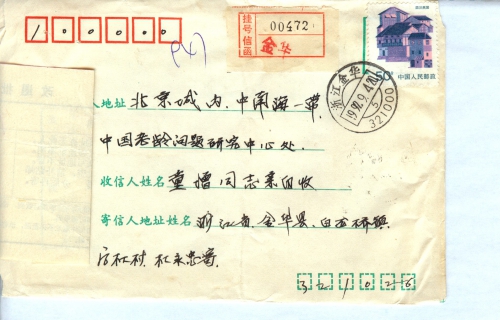 100000
挂号信函
00472
金华
50分 中国人民邮政
浙江金华
1992.9.4.20
5
321000
人地址 北京城内,中南海一带,
中国老龄问题研究中心处.
收信人姓名 董 同志亲自收
寄信人地址姓名 浙江省,金华县,白龙桥镇
杜村,杜永忠寄
321026